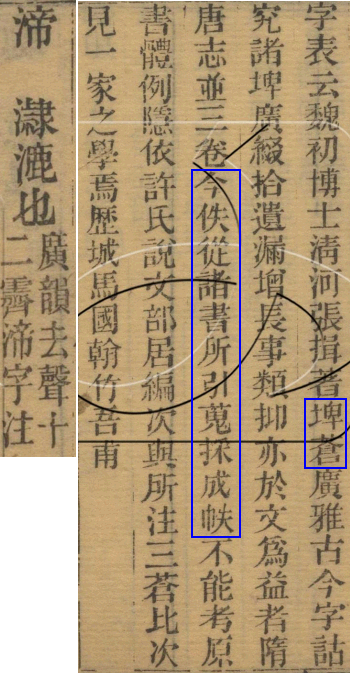 字表云魏初博士淸河張揖著埤蒼廣雅古今字詁
究諸埤廣綴拾遺漏增長事類抑亦於文爲益者隋
唐志並三卷今佚從諸書所引蒐採成帙不能考原
書體例隱依許氏說文部居編次與所注三蒼比次
見一家之學焉歷城馬國翰竹吾甫
渧 㶟漉也
廣韻去聲十
二霽渧字注